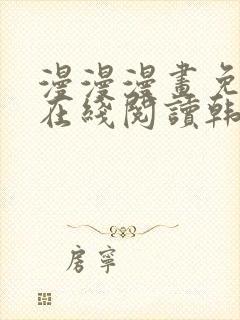 漫漫漫畫免
在綫閱讀韩
房寧